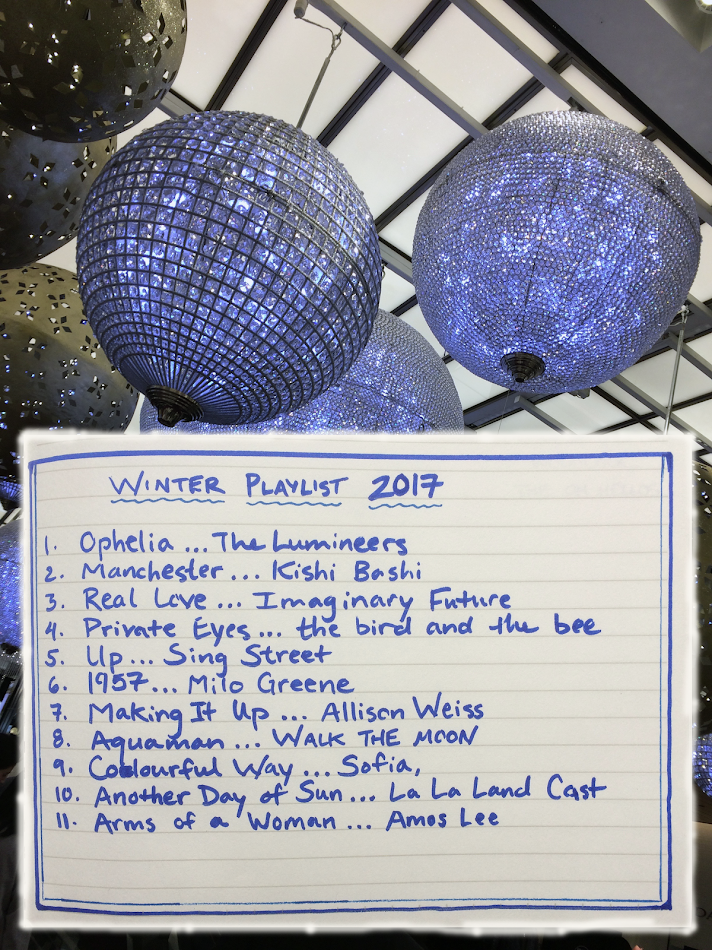 WINTER PLAYLIST 2017
1. Ophelia ... The Lumineers
2. Manchester ... Kishi Bashi
3. Real Love ... Imaginary Future
4. Private Eyes ... the bird and the bee
5. Up ... Sing Street
6. 1957 ... Milo Greene
7. Making It Up ... Allison Weiss
8. Aquaman ... WALK THE MOON
9. Colourful Way ... Sofia,
10. Another Day of Sun ... La La Land Cast
11. Arms of a Woman ... Amos Lee